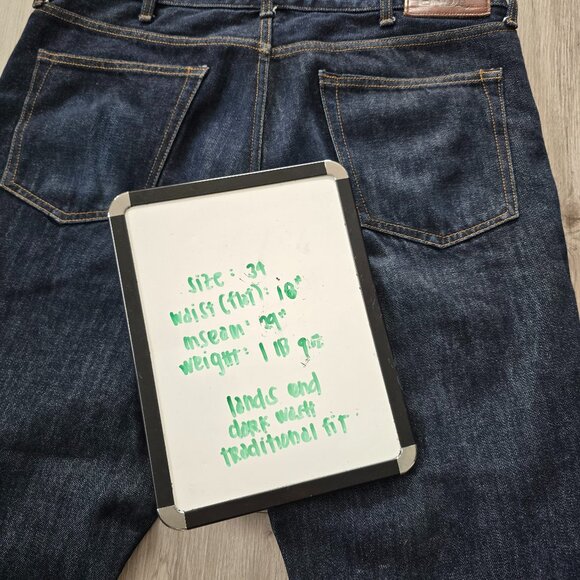 size: 34
waist (flat): 18"
inseam: 29"
weight: 1 lB 9 oz
lands end
dark wash
traditional fit